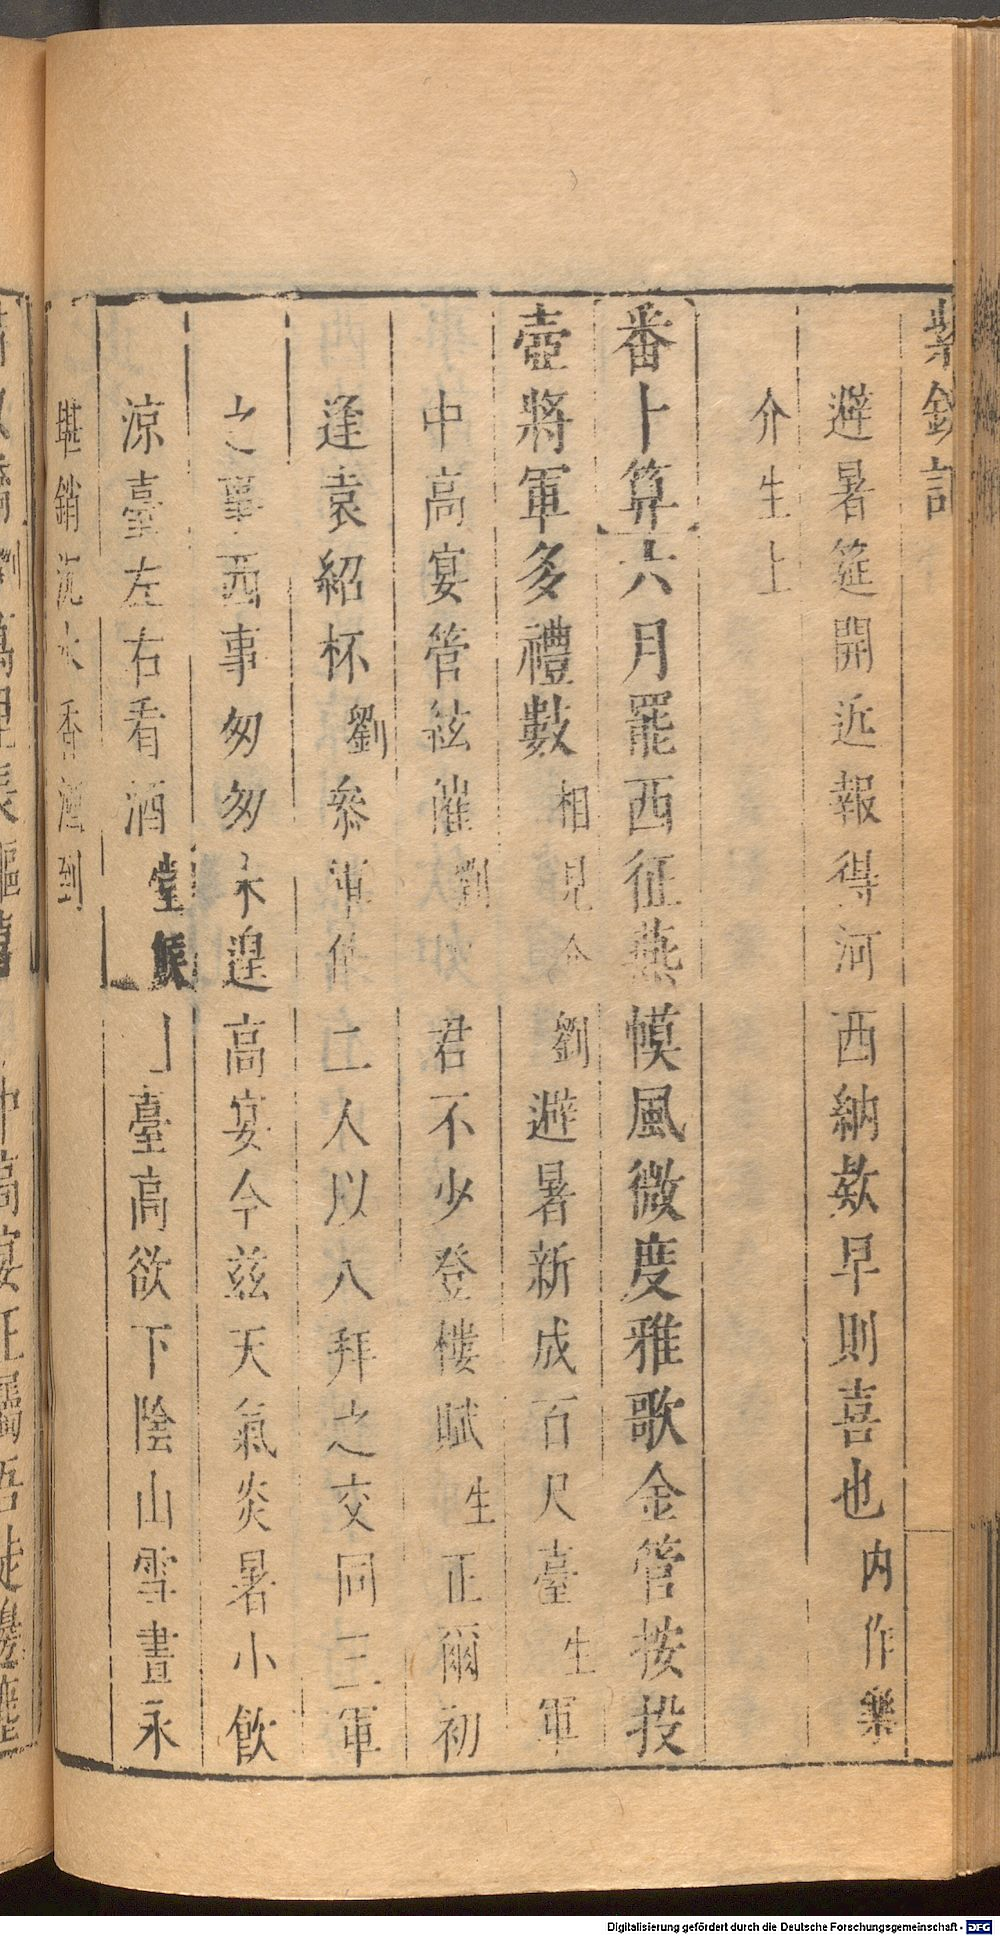 紫釵記
避暑筵開近報得河西納款早則喜也內作樂
介生上
番卜算六月罷西征燕幙風微度雅歌金管按投
壺將軍多禮數相見介劉避暑新成百尺臺生軍
中高宴管絃催劉君不少登樓賦生正爾初
逢袁紹杯劉參軍俺二人以八拜之交同三軍
之事西事匆匆未遑高宴今兹天氣炎暑小飲
涼臺左右看酒堂候臺高欲下陰山雪晝永
堪銷沉水香酒到
Digitalisierung gefördert durch die Deutsche Forschungsgemeinschaft - DFG